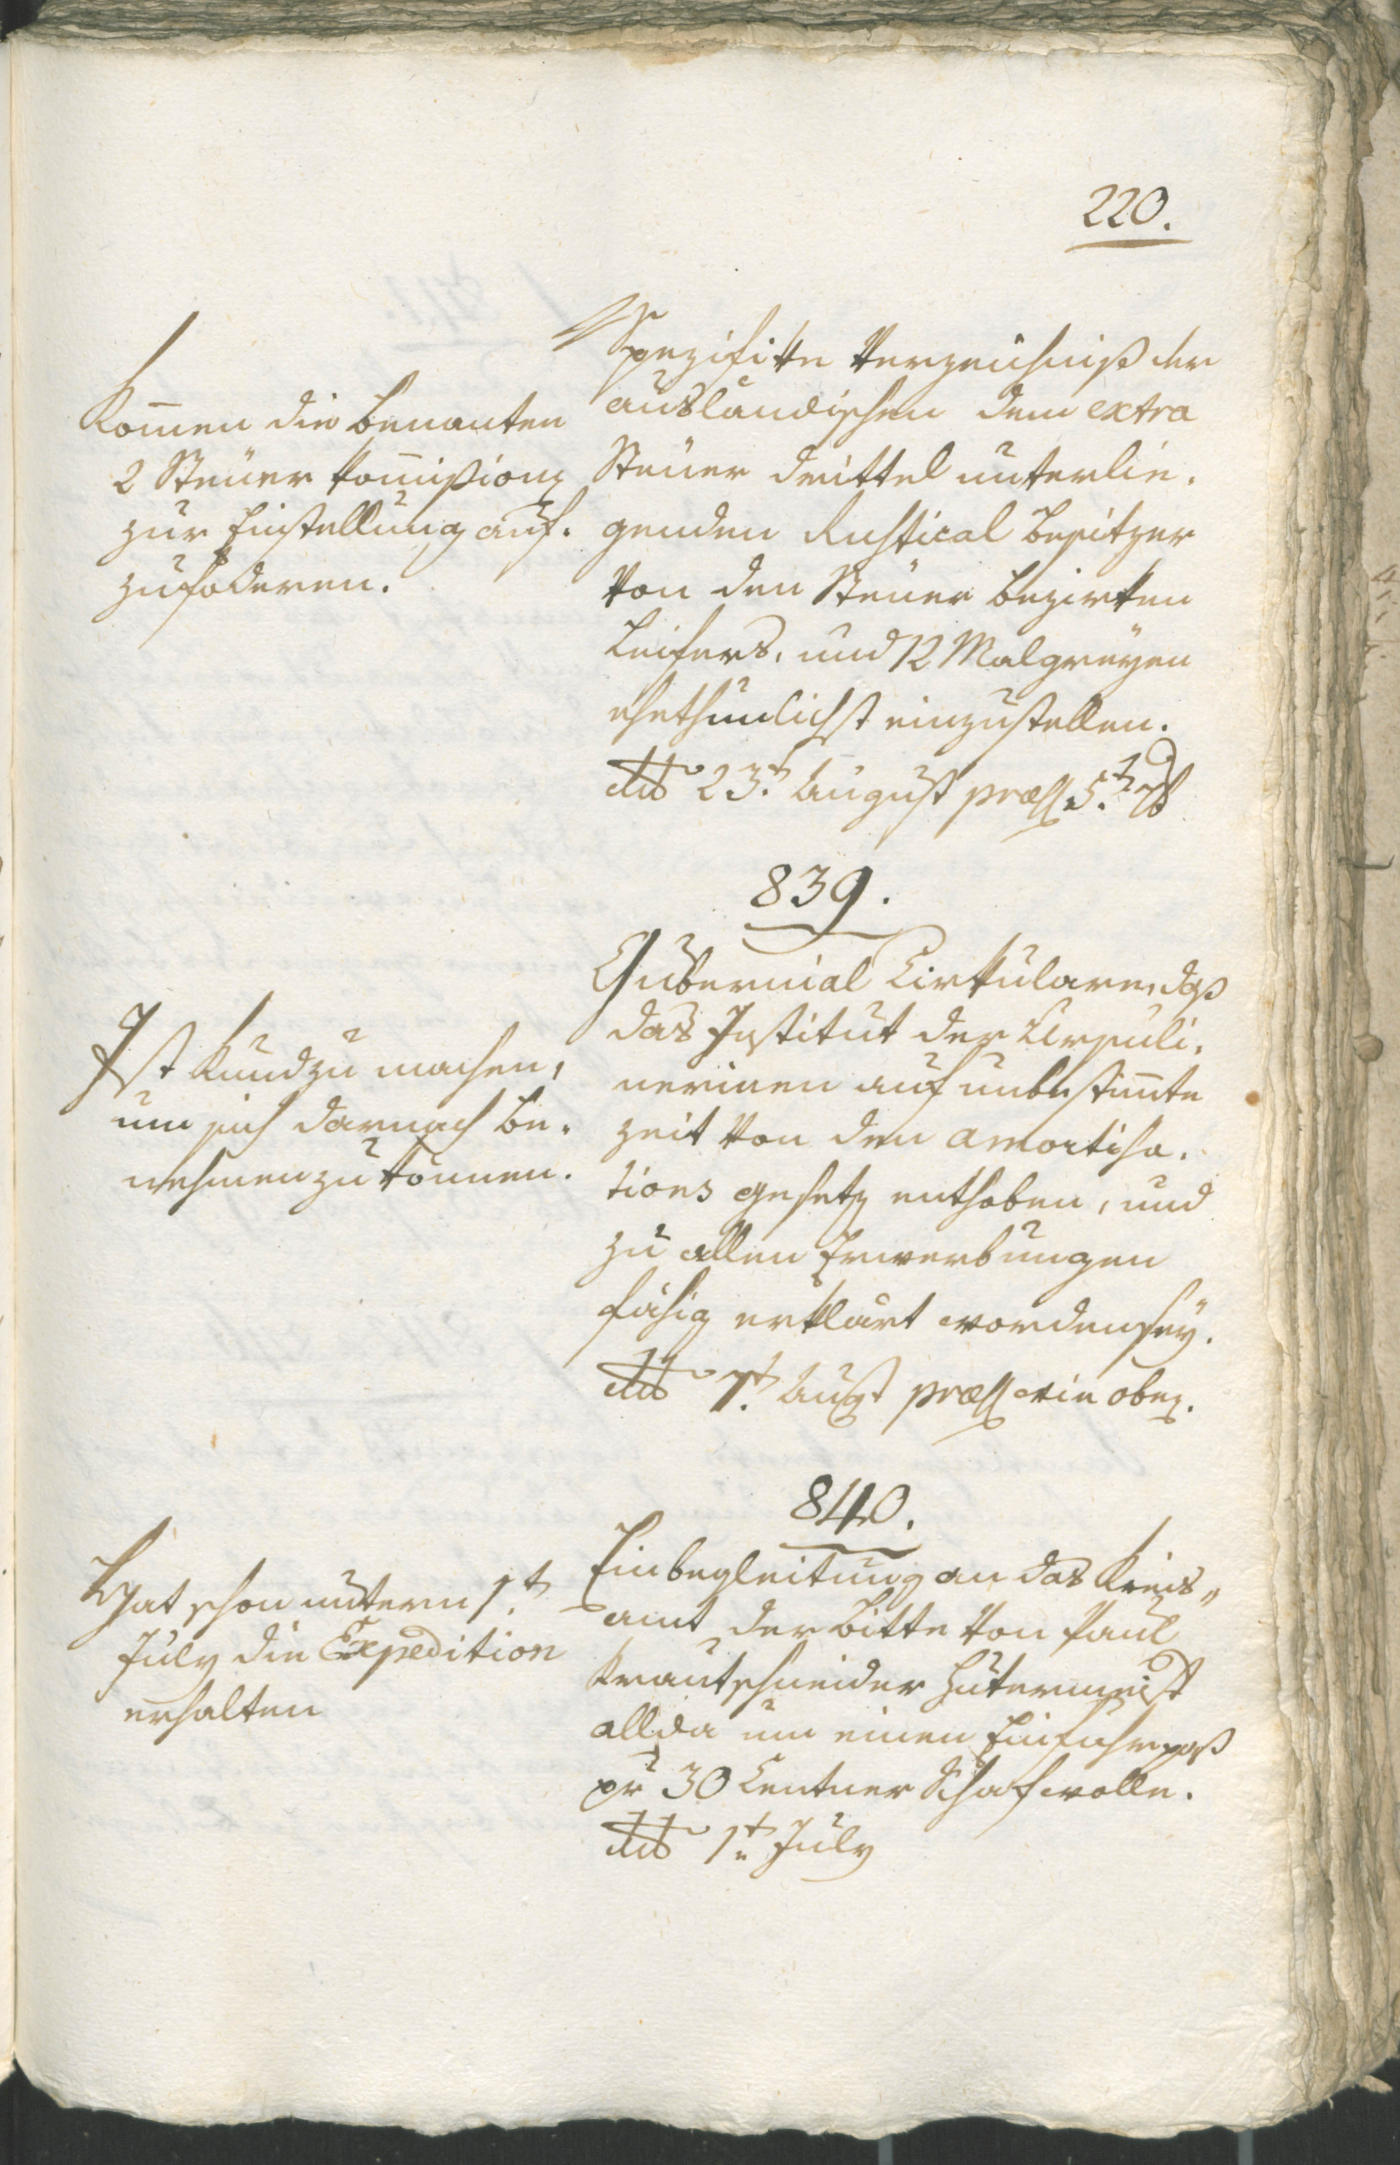 220.
Kom̅en die benanten
2 Steüer Kom̅ißionẽ
zur Einstellung auf-
zufoderen.
Spezifikte Verzeichniß der
ausländischen dem extra
Steüer drittel unterlie-
genden Rustical Besitzer
von den Steüer bezirken
Leifers, und 12 Malgreÿen
ehethunlichst einzustellen.
dto 23.t August præs. 5.t 7b
839.
Ist kund zu machen,
um sich darnach be-
nehmen zu können.
Gubernial Cirkulare, daß
das Institut der Ursuli-
nerinen auf unbestim̅te
zeit von den amortisa-
tions gesetz enthoben, und
zu allen Erwerbungen
fähig erklärt worden seÿ.
dto 7.t Augst præs. wie obeñ.
840.
Hat schon untern 1.t
July die Expedition
erhalten
Einbegleitung an das Kreis„
amt der Bitte von Paul
Krautschneider Hutermeist
allda um einen Einfuhrpaß
pr 30 Centner Schafwolle.
dto 1.t July